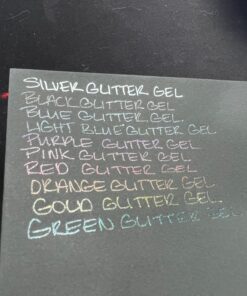 SILVER GLITTER GEL
BLACK GLITTER GEL
BLUE GLITTER GEL
LIGHT BLUE GLITTER GEL
PURPLE GLITTER GEL
PINK GLITTER GEL
RED GLITTER GEL
ORANGE GLITTER GEL
GOLD GLITTER GEL
GREEN GLITTER GEL